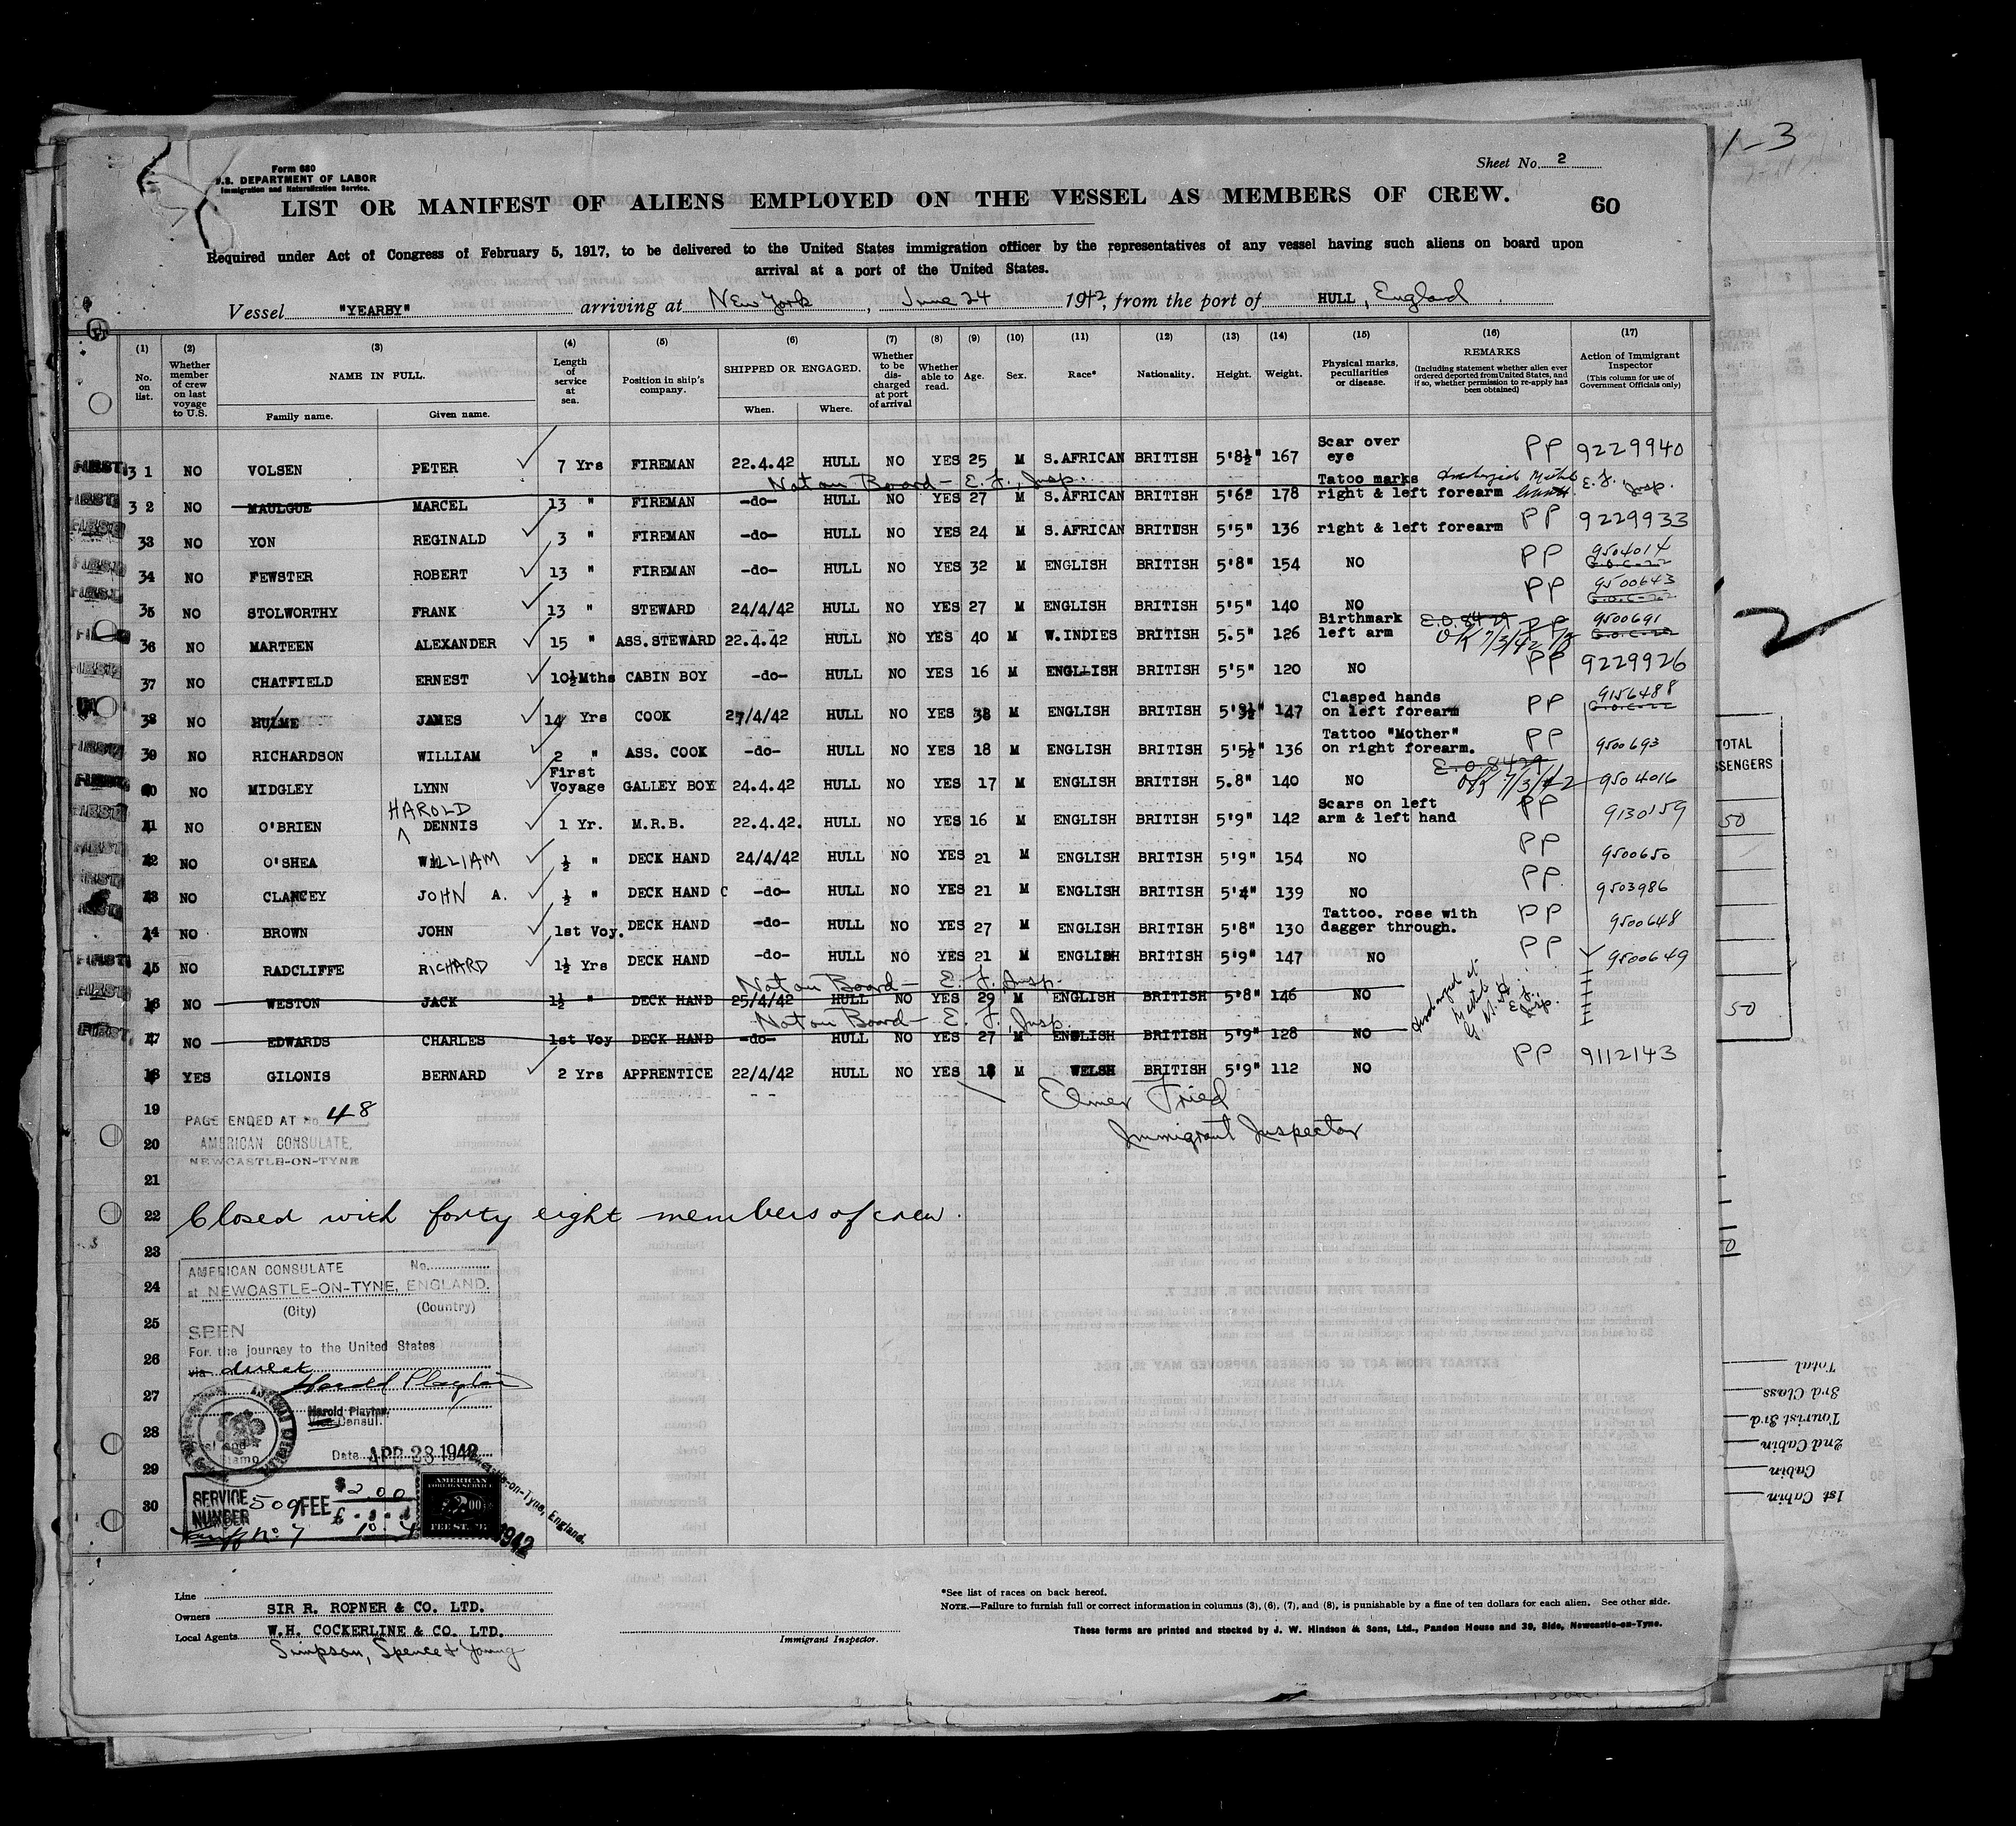 1-3
Form 680
U.S. DEPARTMENT OF LABOR
Immigration and Naturalization Service.
Sheet No. 2
LIST OR MANIFEST OF ALIENS EMPLOYED ON THE VESSEL AS MEMBERS OF CREW.
60
Required under Act of Congress of February 5, 1917, to be delivered to the United States immigration officer by the representatives of any vessel having such aliens on board upon
arrival at a port of the United States.
Vessel "YEARBY" arriving at New York, June 24 1942, from the port of HULL, England
(1) (2) (3) (4) (5) (6) (7) (8) (9) (10) (11) (12) (13) (14) (15) (16) (17)
No. on list.
Whether member of crew on last voyage to U.S.
NAME IN FULL.
Family name. Given name.
Length of service at sea.
Position in ship's company.
SHIPPED OR ENGAGED.
When. Where.
Whether to be discharged at port of arrival
Whether able to read.
Age.
Sex.
Race*
Nationality.
Height.
Weight.
Physical marks, peculiarities or disease.
REMARKS
(Including statement whether alien ever ordered deported from United States, and if so, whether permission to re-apply has been obtained)
Action of Immigrant Inspector
(This column for use of Government Officials only)
FIRST 31 NO VOLSEN PETER 7 Yrs FIREMAN 22.4.42 HULL NO YES 25 M S.AFRICAN BRITISH 5'8½" 167 Scar over eye PP 9229940
Not on Board - E. F., Insp.
FIRST 32 NO MAULGUE MARCEL 13 " FIREMAN -do- HULL NO YES 27 M S.AFRICAN BRITISH 5'6" 178 Tatoo marks right & left forearm E. F. Insp.
FIRST 33 NO YON REGINALD 3 " FIREMAN -do- HULL NO YES 24 M S.AFRICAN BRITISH 5'5" 136 right & left forearm PP 9229933
FIRST 34 NO FEWSTER ROBERT 13 " FIREMAN -do- HULL NO YES 32 M ENGLISH BRITISH 5'8" 154 NO PP 9504014
FIRST 35 NO STOLWORTHY FRANK 13 " STEWARD 24/4/42 HULL NO YES 27 M ENGLISH BRITISH 5'5" 140 NO PP 9500643
36 NO MARTEEN ALEXANDER 15 " ASS.STEWARD 22.4.42 HULL NO YES 40 M W.INDIES BRITISH 5.5" 126 Birthmark left arm E.O. 8429 PP OK 7/3/42 9500691
FIRST 37 NO CHATFIELD ERNEST 10½Mths CABIN BOY -do- HULL NO YES 16 M ENGLISH BRITISH 5'5" 120 NO PP 9229926
38 NO HULME JAMES 14 Yrs COOK 27/4/42 HULL NO YES 38 M ENGLISH BRITISH 5'9½" 147 Clasped hands on left forearm PP 9156488
FIRST 39 NO RICHARDSON WILLIAM 2 " ASS. COOK -do- HULL NO YES 18 M ENGLISH BRITISH 5'5½" 136 Tattoo "Mother" on right forearm. PP 9500693
FIRST 40 NO MIDGLEY LYNN First Voyage GALLEY BOY 24.4.42 HULL NO YES 17 M ENGLISH BRITISH 5.8" 140 NO E.O. 8429 OK 7/3/42 9504016
FIRST 41 NO O'BRIEN HAROLD DENNIS 1 Yr. M.R.B. 22.4.42. HULL NO YES 16 M ENGLISH BRITISH 5'9" 142 Scars on left arm & left hand PP 9130159
FIRST 42 NO O'SHEA WILLIAM ½ " DECK HAND 24/4/42 HULL NO YES 21 M ENGLISH BRITISH 5'9" 154 NO PP 9500650
FIRST 43 NO CLANCEY JOHN A. ½ " DECK HAND -do- HULL NO YES 21 M ENGLISH BRITISH 5'4" 139 NO PP 9503986
FIRST 44 NO BROWN JOHN 1st Voy. DECK HAND -do- HULL NO YES 27 M ENGLISH BRITISH 5'8" 130 Tattoo. rose with dagger through. PP 9500648
FIRST 45 NO RADCLIFFE RICHARD 1½ Yrs DECK HAND -do- HULL NO YES 21 M ENGLISH BRITISH 5'9" 147 NO PP 9500649
Not on Board - E. F., Insp.
FIRST 46 NO WESTON JACK 1½ " DECK HAND 25/4/42 HULL NO YES 29 M ENGLISH BRITISH 5'8" 146 NO
Not on Board - E. F., Insp.
FIRST 47 NO EDWARDS CHARLES 1st Voy DECK HAND -do- HULL NO YES 27 M ENGLISH BRITISH 5'9" 128 NO E. F. Insp.
48 YES GILONIS BERNARD 2 Yrs APPRENTICE 22/4/42 HULL NO YES 18 M WELSH BRITISH 5'9" 112 NO PP 9112143
Elmer Fried
Immigrant Inspector
19
PAGE ENDED AT No. 48
20
AMERICAN CONSULATE,
NEWCASTLE-ON-TYNE
21
22 Closed with forty eight members of crew.
23
AMERICAN CONSULATE No.
24
at NEWCASTLE-ON-TYNE, ENGLAND.
(City) (Country)
25
SEEN
For the journey to the United States
26
via direct
Harold Playter
27
Harold Playter,
Vice Consul.
28
Date APR 28 1942
29
30
SERVICE NUMBER 509 FEE $2.00
Tariff No. 7
AMERICAN
FOREIGN SERVICE
FEE STAMP
Newcastle-on-Tyne, England.
1942
Line
Owners SIR R. ROPNER & CO. LTD.
Local Agents W.H. COCKERLINE & CO. LTD.
Simpson, Spence & Young
Immigrant Inspector.
*See list of races on back hereof.
NOTE.—Failure to furnish full or correct information in columns (3), (6), (7), and (8), is punishable by a fine of ten dollars for each alien. See other side.
These forms are printed and stocked by J. W. Hindson & Sons, Ltd., Pandon House and 39, Side, Newcastle-on-Tyne.
2
TOTAL
50
50
Total
3rd Class
Tourist 3rd
2nd Cabin
Cabin
1st Cabin